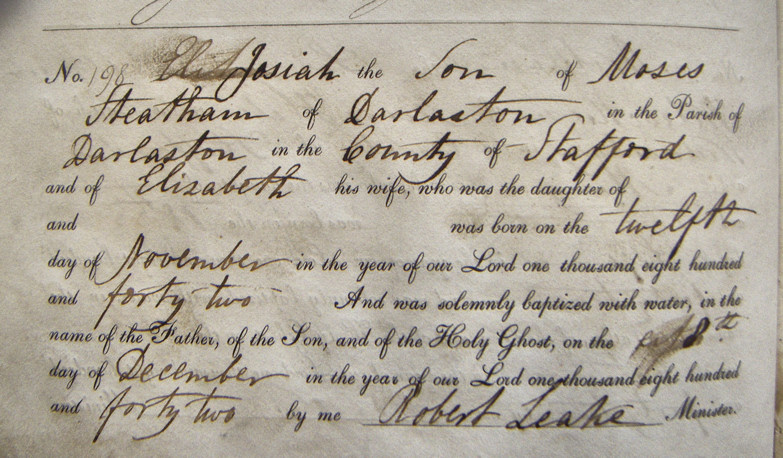 No. 198 Josiah the Son of Moses
Steatham of Darlaston in the Parish of
Darlaston in the County of Stafford
and of Elizabeth his wife, who was the daughter of
and was born on the twelfth
day of November in the year of our Lord one thousand eight hundred
and forty two And was solemnly baptized with water, in the
name of the Father, of the Son, and of the Holy Ghost, on the 8th
day of December in the year of our Lord one thousand eight hundred
and forty two by me Robert Leake Minister.